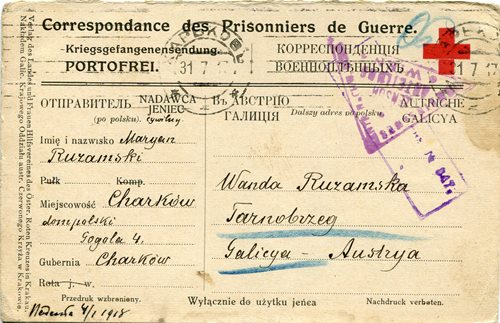 Correspondance des Prisonniers de Guerre.
Kriegsgefangenensendung.
PORTOFREI.
КОРРЕСПОНДЕНЦІЯ
ВОЕННОПЛѢННЫХЪ
31 7
ОТПРАВИТЕЛЬ
(po polsku).
NADAWCA
JENIEC
cywilny
ВЪ АВСТРІЮ
ГАЛИЦІЯ
Dalszy adres po polsku.
AUTRICHE
GALICYA
Imię i nazwisko Maryan
Ruzamski
Pułk Komp.
Miejscowość Charków
dom polski
Gogola 4.
Gubernia Charków
Rota j. w.
Przedruk wzbroniony.
Wanda Ruzamska
Tarnobrzeg
Galicya - Austrya
Wyłącznie do użytku jeńca
Nachdruck verboten.
4/1 1918
Verlag des Landes und Frauen Hilfsvereines des Öster. Roten Kreuzes in Krakau.
Nakładem Galic. Krajowego Oddziału austr. Czerwonego Krzyża w Krakowie.